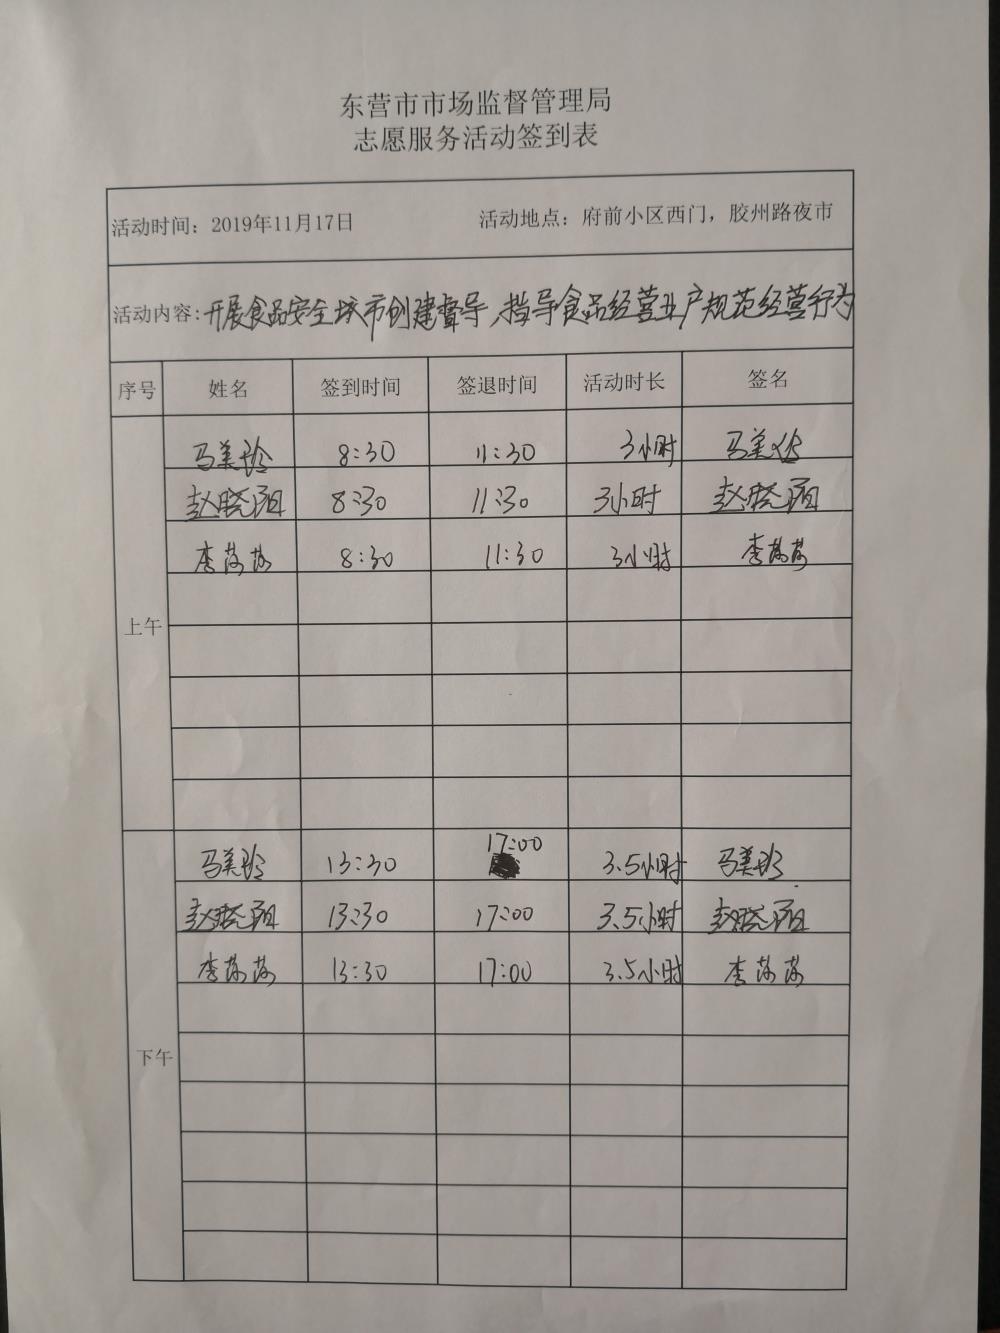 东营市市场监督管理局
志愿服务活动签到表
活动时间：2019年11月17日 活动地点：府前小区西门，胶州路夜市
活动内容：开展食品安全城市创建督导、指导食品经营业户规范经营行为
序号 姓名 签到时间 签退时间 活动时长 签名
上午
马美玲 8:30 11:30 3小时 马美玲
赵晓涵 8:30 11:30 3小时 赵晓涵
李荔荔 8:30 11:30 3小时 李荔荔
下午
马美玲 13:30 17:00 3.5小时 马美玲
赵晓涵 13:30 17:00 3.5小时 赵晓涵
李荔荔 13:30 17:00 3.5小时 李荔荔